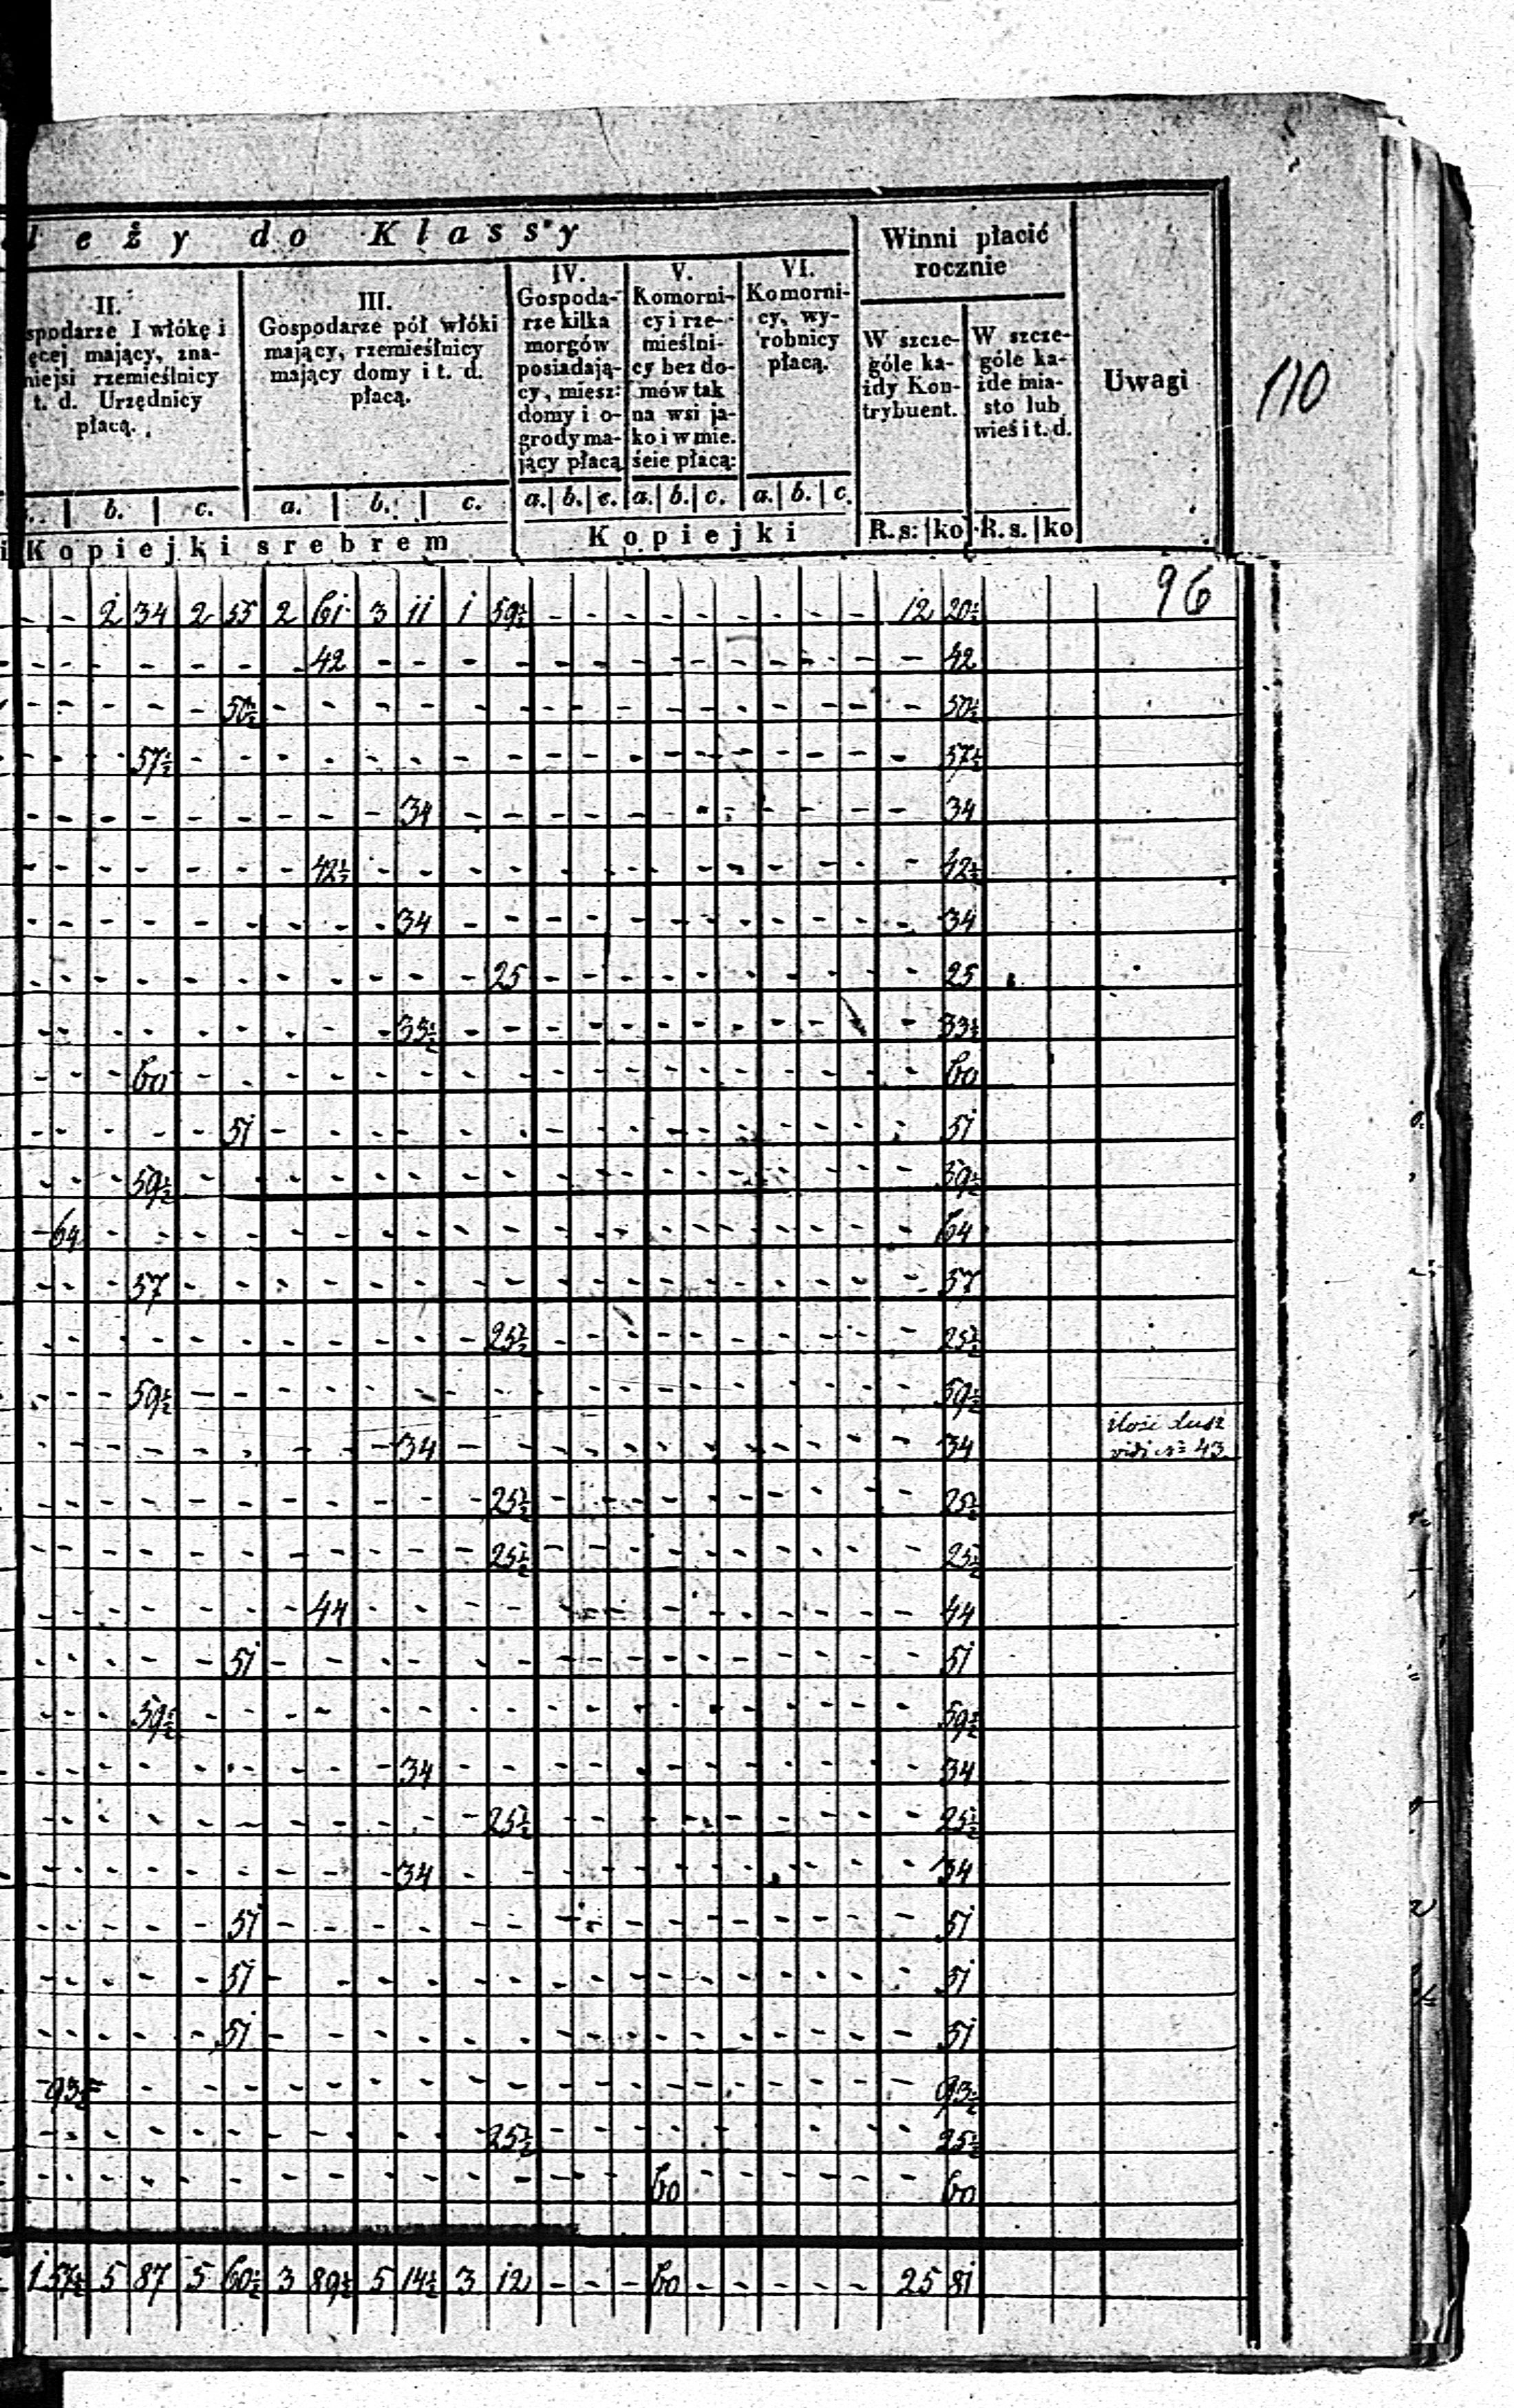 leży do Klassy
Winni płacić
rocznie
Uwagi
110
II.
spodarze I włókę i
ęcej mający, zna-
niejsi rzemieślnicy
t. d. Urzędnicy
płacą.
III.
Gospodarze pół włóki
mający, rzemieślnicy
mający domy i t. d.
płacą.
IV.
Gospoda-
rze kilka
morgów
posiadają-
cy, miesz:
domy i o-
grody ma-
jący płacą
V.
Komorni-
cy i rze-
mieślni-
cy bez do-
mów tak
na wsi ja-
ko i w mie.
ście płacą:
VI.
Komorni-
cy, wy-
robnicy
płacą.
W szcze-
góle ka-
żdy Kon-
trybuent.
W szcze-
góle ka-
żde mia-
sto lub
wieś i t. d.
b. c. a. b. c. a. b. c. a. b. c. a. b. c.
Kopiejki srebrem Kopiejki R. s: ko R. s. ko
96
- - 2 34 2 55 2 61 3 11 1 59½ - - - - - - - - - 12 20½
42 42
50½ 50½
57½ 57½
34 34
42½ 42½
34 34
25 25
33½ 33½
60 60
51 51
59½ 59½
64 64
57 57
25½ 25½
59½ 59½
34 34 ilość dusz
43
25½ 25½
25½ 25½
44 44
51 51
59½ 59½
34 34
25½ 25½
34 34
51 51
51 51
51 51
93½ 93½
25½ 25½
60 60
1 57½ 5 87 5 60½ 3 89½ 5 14½ 3 12 - - - 60 - - - - - 25 81